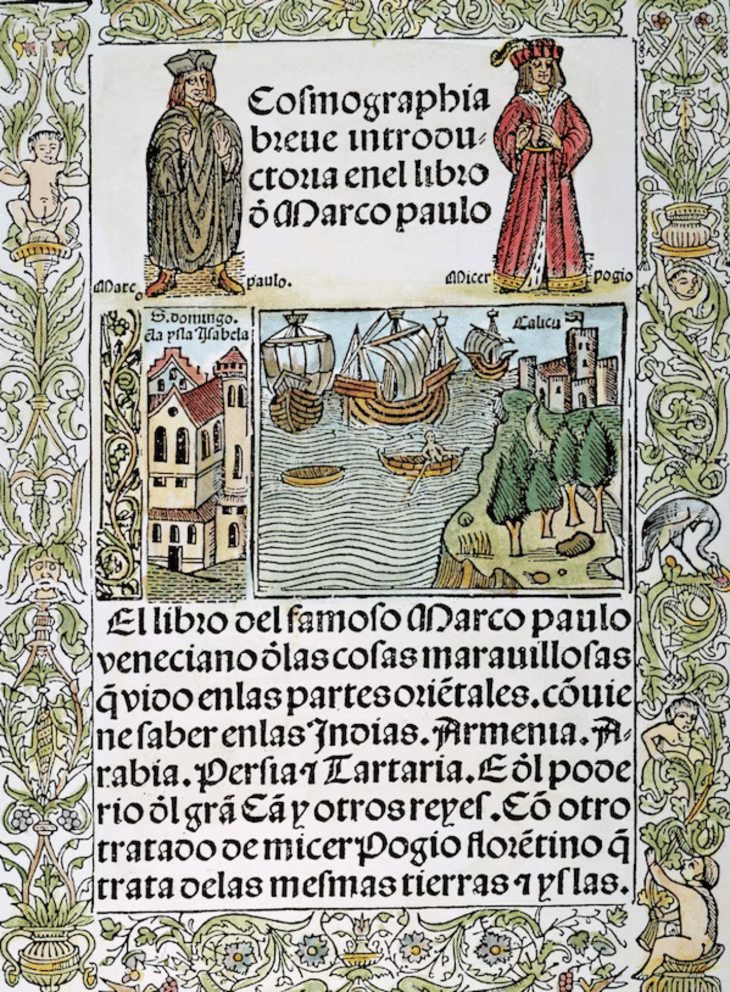 Coſmographia
breue introdu⸗
ctoria enel libro
ð Marco paulo
Marc
o
paulo.
Micer
pogio
S. domingo.
ēla yſla Yſabela
Calicu
El libro del famoſo Marco paulo
veneciano ðlas coſas marauilloſas
q̃ vido enlas partes oriẽtales. cõuie
ne ſaber enlas Indias. Armenia. A⸗
rabia. Perſia ⁊ Tartaria. E ðl pode
rio ðl grã Cã y otros reyeſ. Cõ otro
tratado de micer Pogio florẽtino q̃
trata delas meſmas tierras ⁊ yſlas.